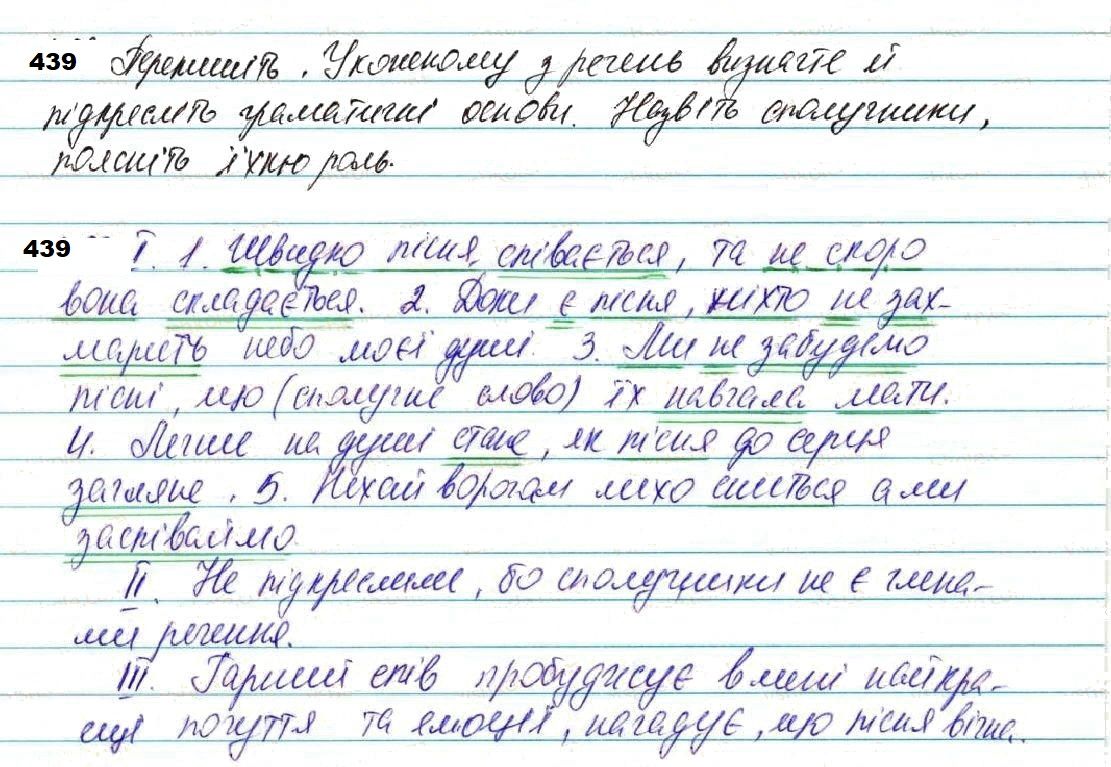 439 Перепишіть. У кожному з речень визначте й
підкресліть граматичні основи. Назвіть сполучники,
поясніть їхню роль.
439 I. 1. Швидко пісня співається, та не скоро
вона складається. 2. Доки є пісня, ніхто не зах-
марить небо моєї душі. 3. Ми не забудемо
пісні, що (сполучне слово) їх навчала мати.
4. Легше на душі стане, як пісня до серця
загляне. 5. Нехай ворогам лихо сниться а ми
заспіваймо.
II. Не підкреслили, бо сполучники не є члена-
ми речення.
III. Гарний спів пробуджує в мені найкра-
щі почуття та емоції, нагадує, що пісня вічна.